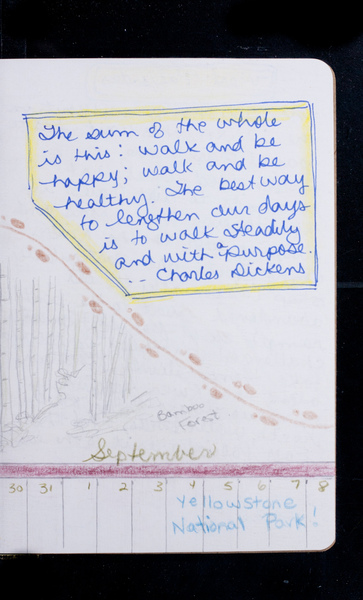 The sum of the whole
is this: walk and be
happy; walk and be
healthy. The best way
to lengthen our days
is to walk steadily
and with a purpose.
-- Charles Dickens
Bamboo
Forest
September
30 31 1 2 3 4 5 6 7 8
Yellowstone
National Park!